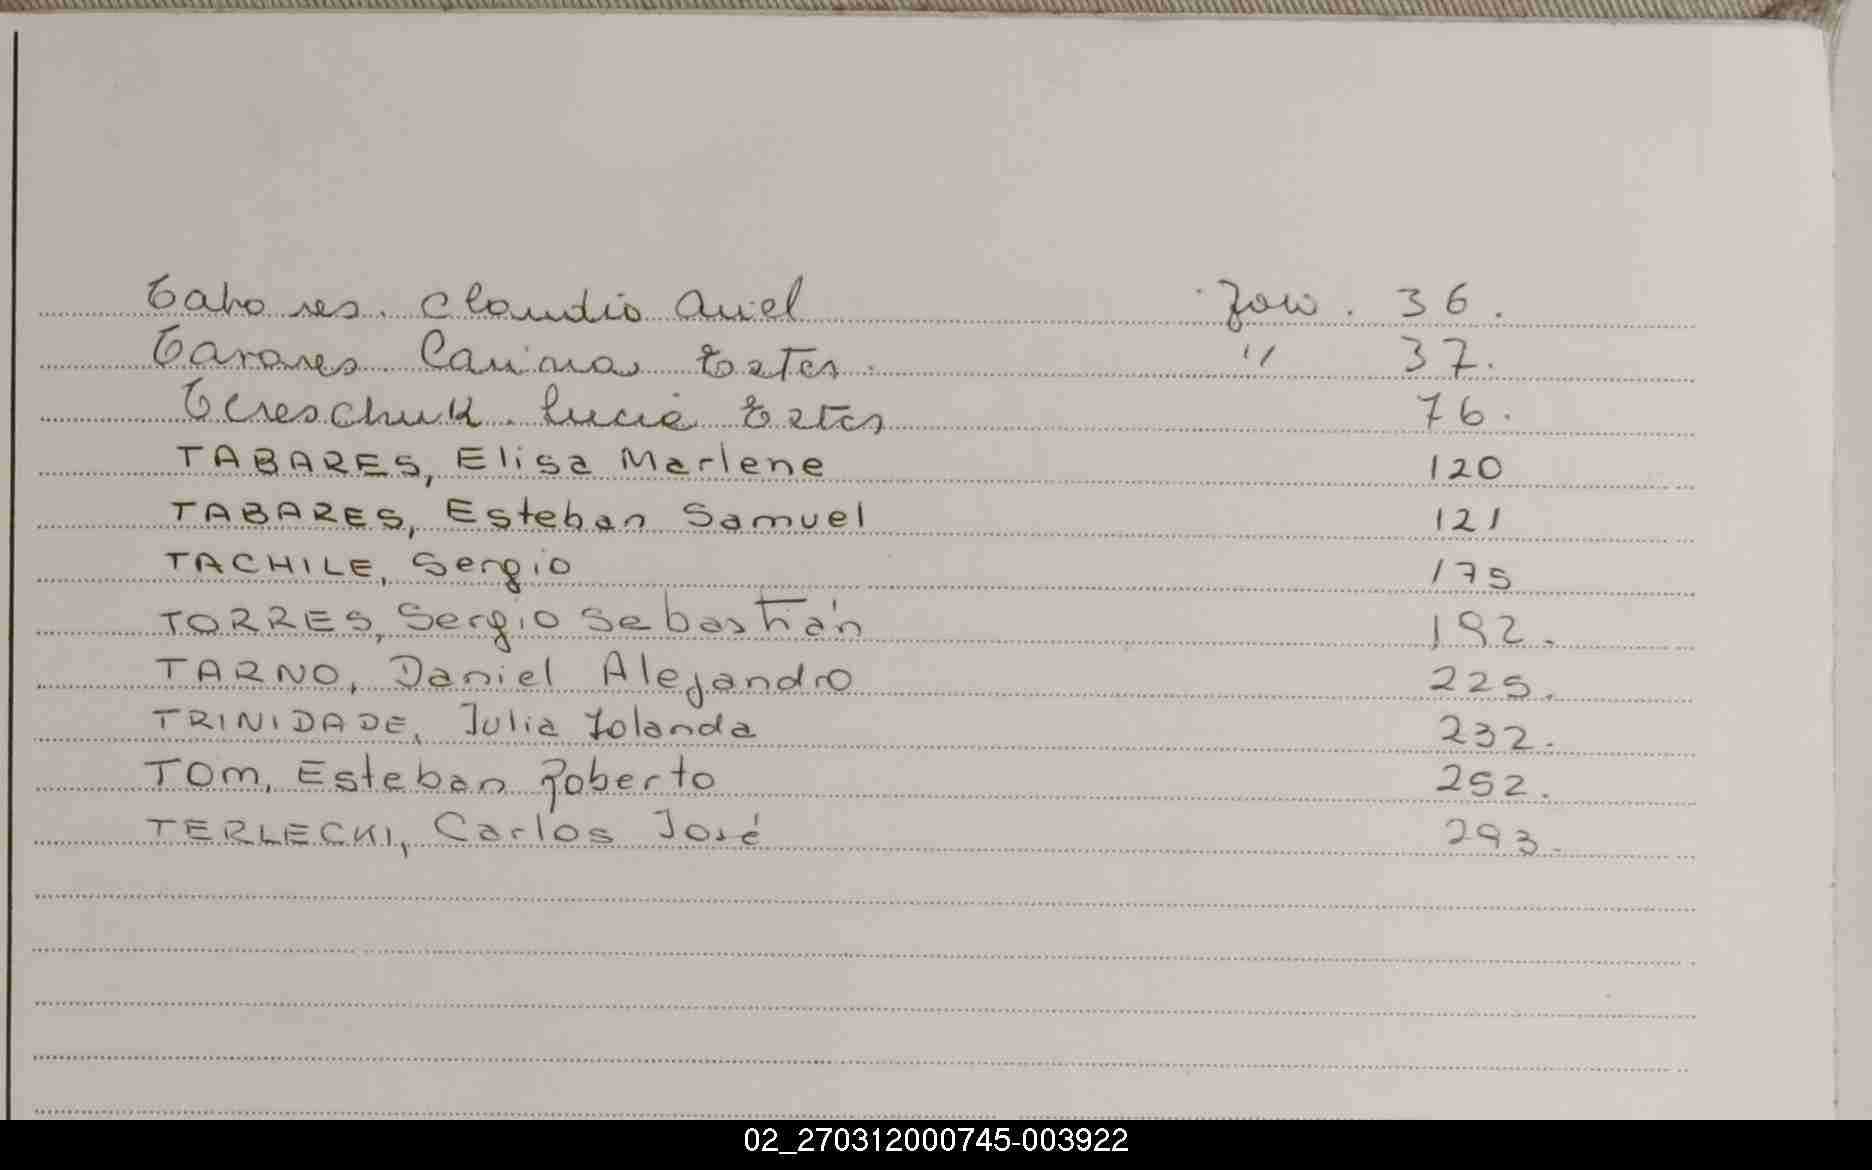 Tabores. Claudio Ariel Foio. 36.
Tavares Carina Ester. " 37.
Tereschuk. Lucia Ester 76.
TABARES, Elisa Marlene 120
TABARES, Esteban Samuel 121
TACHILE, Sergio 175
TORRES, Sergio Sebastián 192.
TARNO, Daniel Alejandro 225.
TRINIDADE, Julia Iolanda 232.
TOM, Esteban Roberto 252.
TERLECKI, Carlos José 293.
02_270312000745-003922